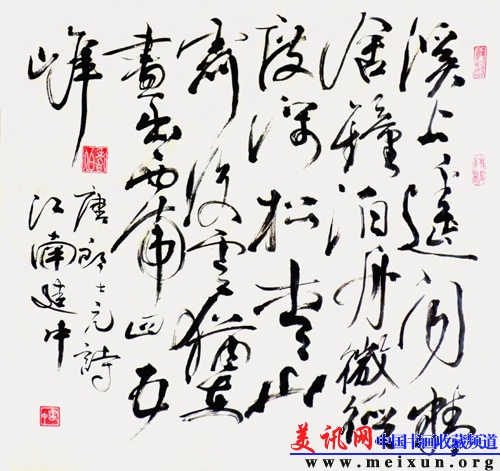 溪上遙聞精
舍鐘泊舟微徑
度深松青山
霽後雲猶在
畫出西南四五
峰
唐郎士元詩
江南建中
美讯网
中国书画收藏频道
www.meixun.org